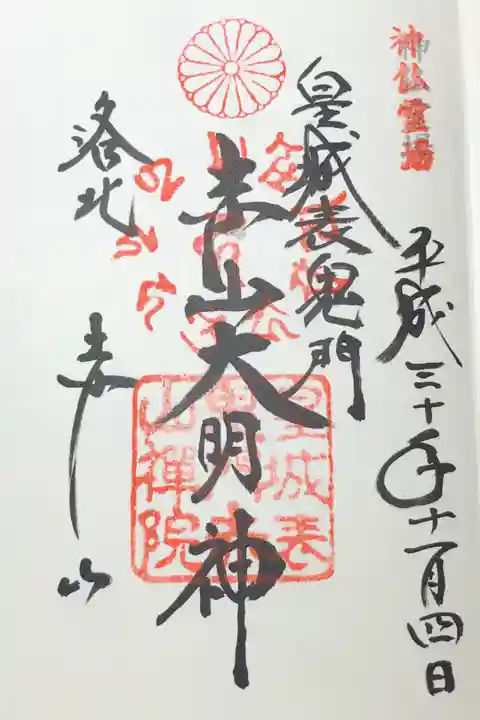 神仏霊場
平成三十年十一月四日
皇城表鬼門
赤山大明神
皇城表
鬼門赤
山禅院
洛北
赤山